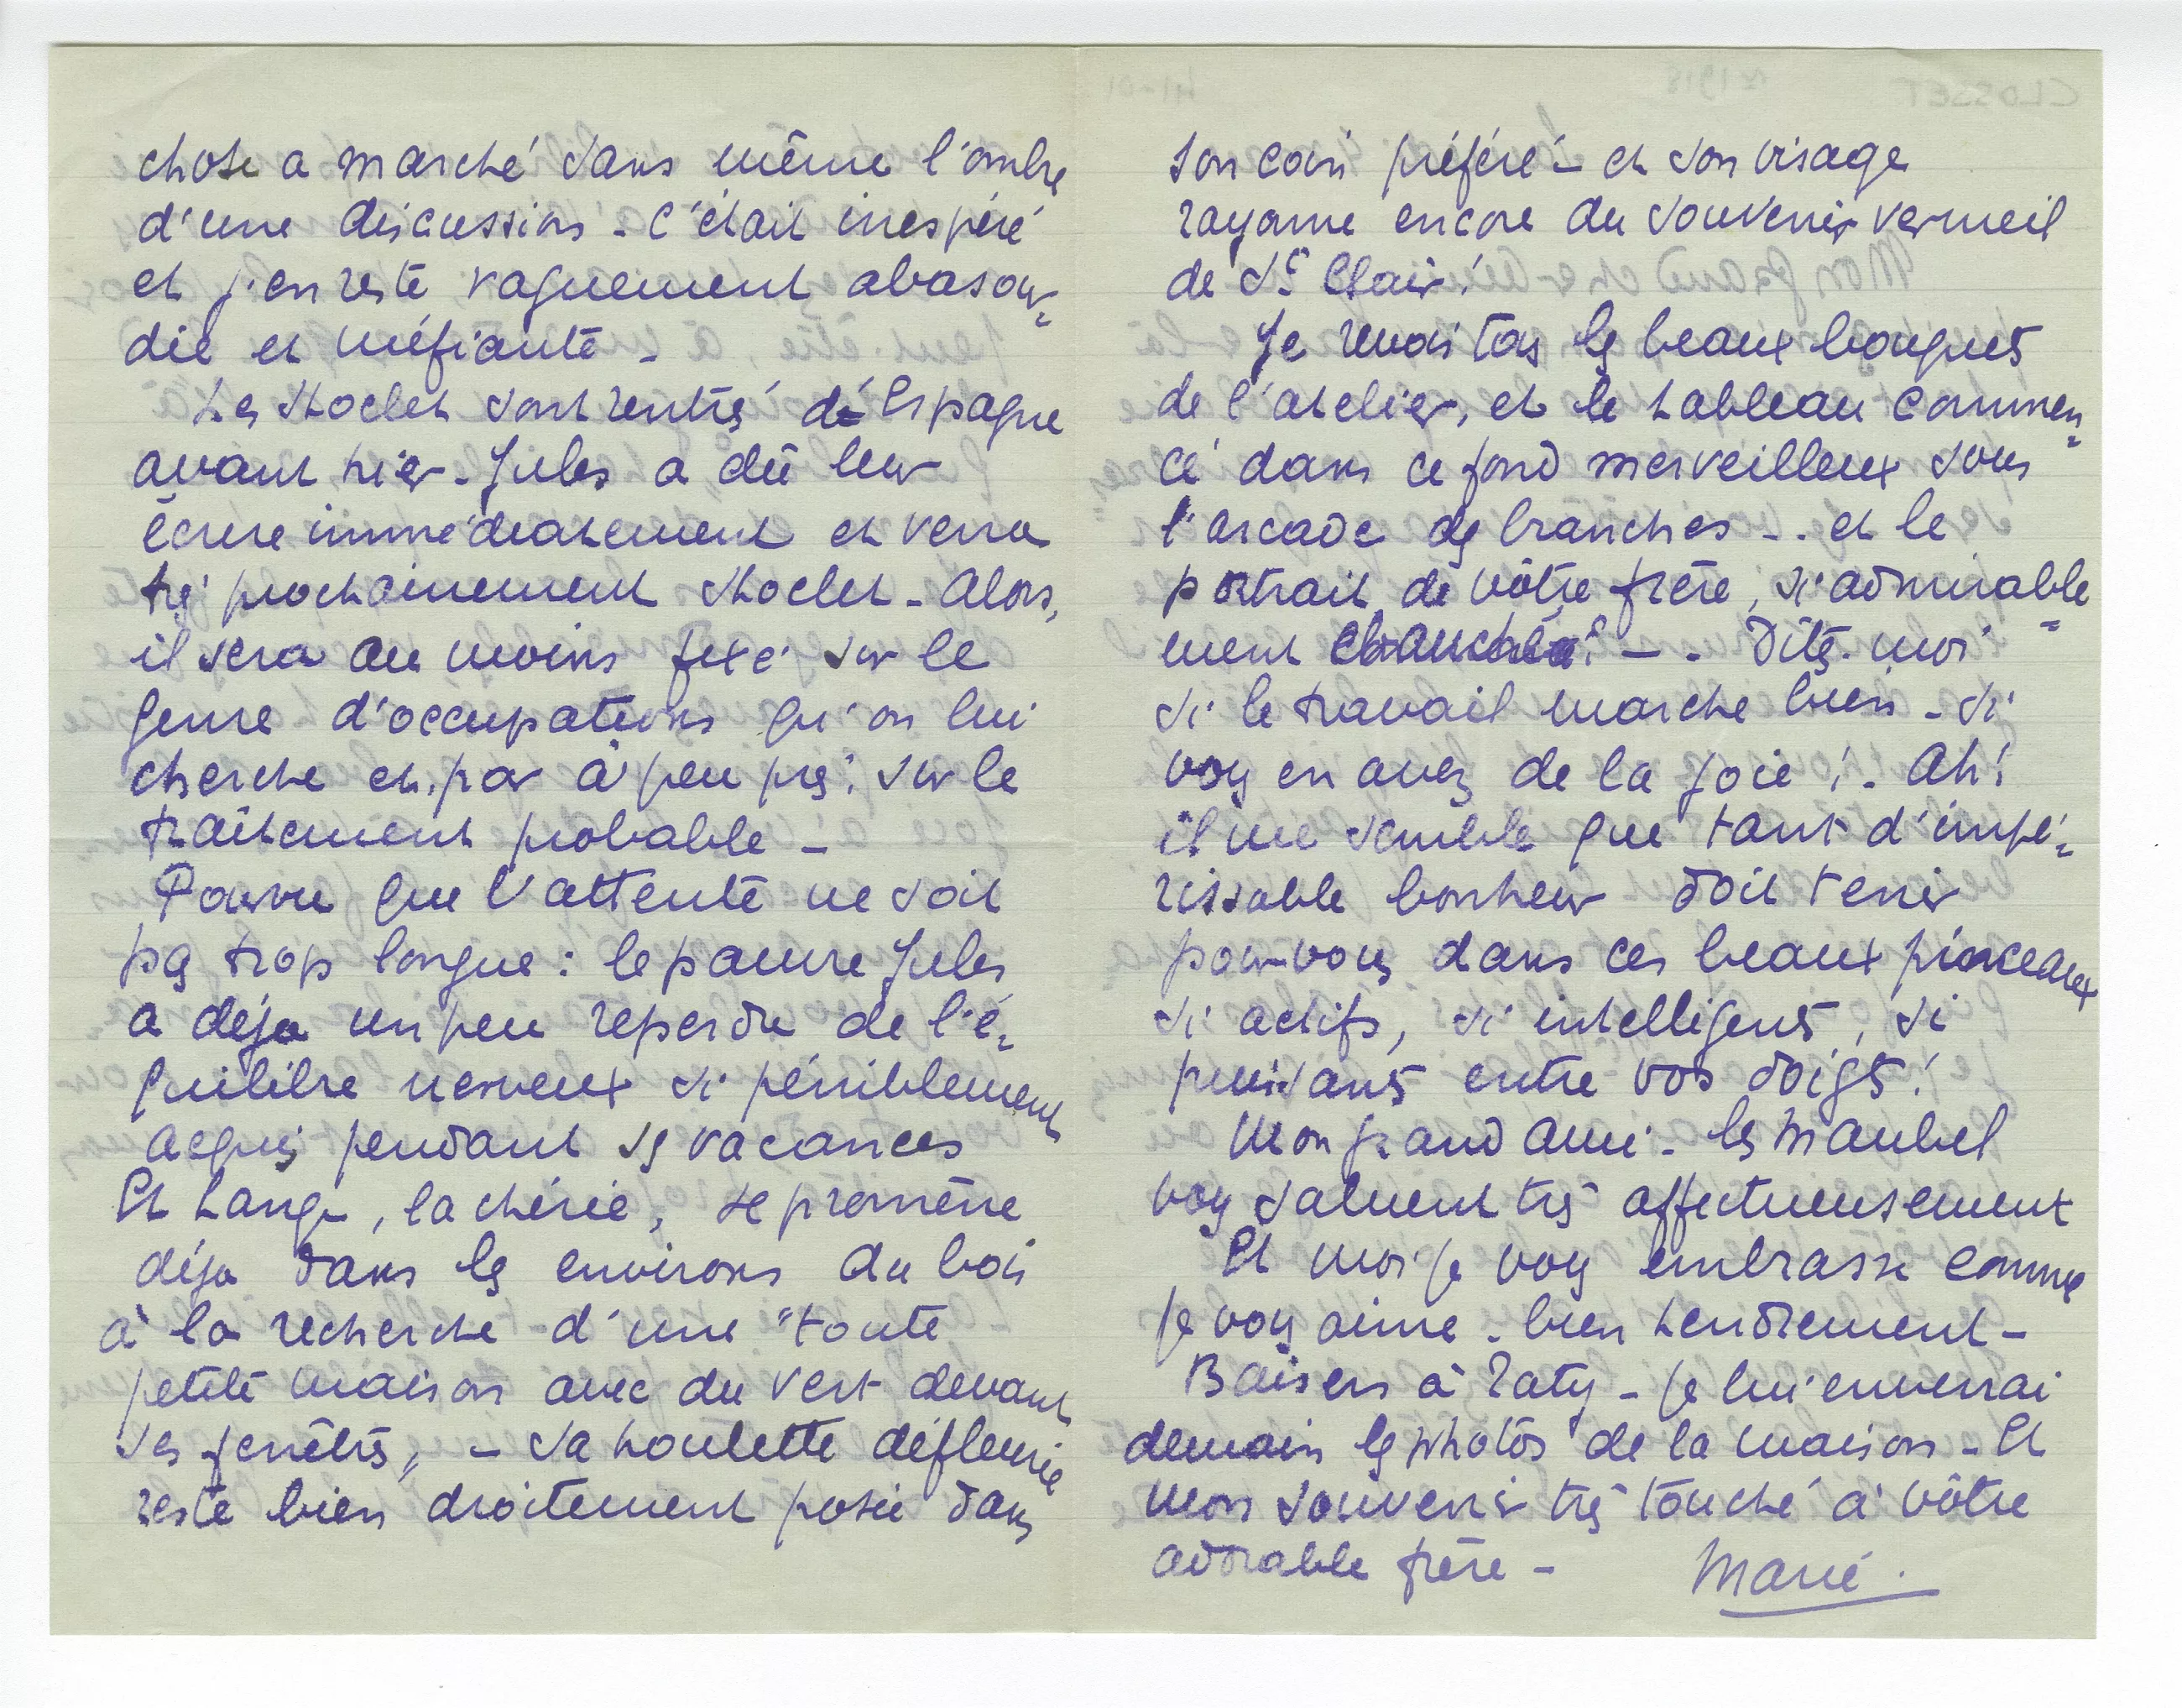 chose a marché sans même l'ombre
d'une discussion - C'était inespéré
et j'en reste vaguement abasour=
die et méfiante -
Les Stoclet sont rentrés d'Espagne
avant hier - Jules a dû leur
écrire immédiatement et verra
très prochainement Stoclet - Alors,
il sera au moins fixé sur le
genre d'occupations qu'on lui
cherche et, par à peu près, sur le
traitement probable -
Pourvu que l'attente ne soit
pas trop longue : le pauvre Jules
a déja un peu reperdu de l'é=
quilibre nerveux si péniblement
acquis pendant ses vacances
Et Lange, la chérie, se promène
déja dans les environs du bois
à la recherche d'une "toute
petite maison avec du vert devant
ses fenêtres" - Sa houlette défleurie
reste bien droitement posée dans
son coin préféré - et son visage
rayonne encore du souvenir vermeil
de St Clair!
Je revois tous les beaux bouquets
de l'atelier, et le tableau commen=
cé dans ce fond merveilleux sous
l'arcade des branches - . et le
portrait de vôtre frère, si admirable=
ment ébauché! - . Dites-moi
si le travail marche bien - si
vous en avez de la joie! - Ah!
il me semble que tant d'impé=
rissable bonheur doit tenir
pour vous dans ces beaux pinceaux
si actifs, si intelligents, si
puissants entre vos doigts!
Mon grand ami - les Maubel
vous saluent très affectueusement
Et moi je vous embrasse comme
je vous aime - bien tendrement -
Baisers à Taty - je lui enverrai
demain les photos de la maison - Et
mon souvenir très touché à vôtre
adorable frère - Marie.
CLOSSET